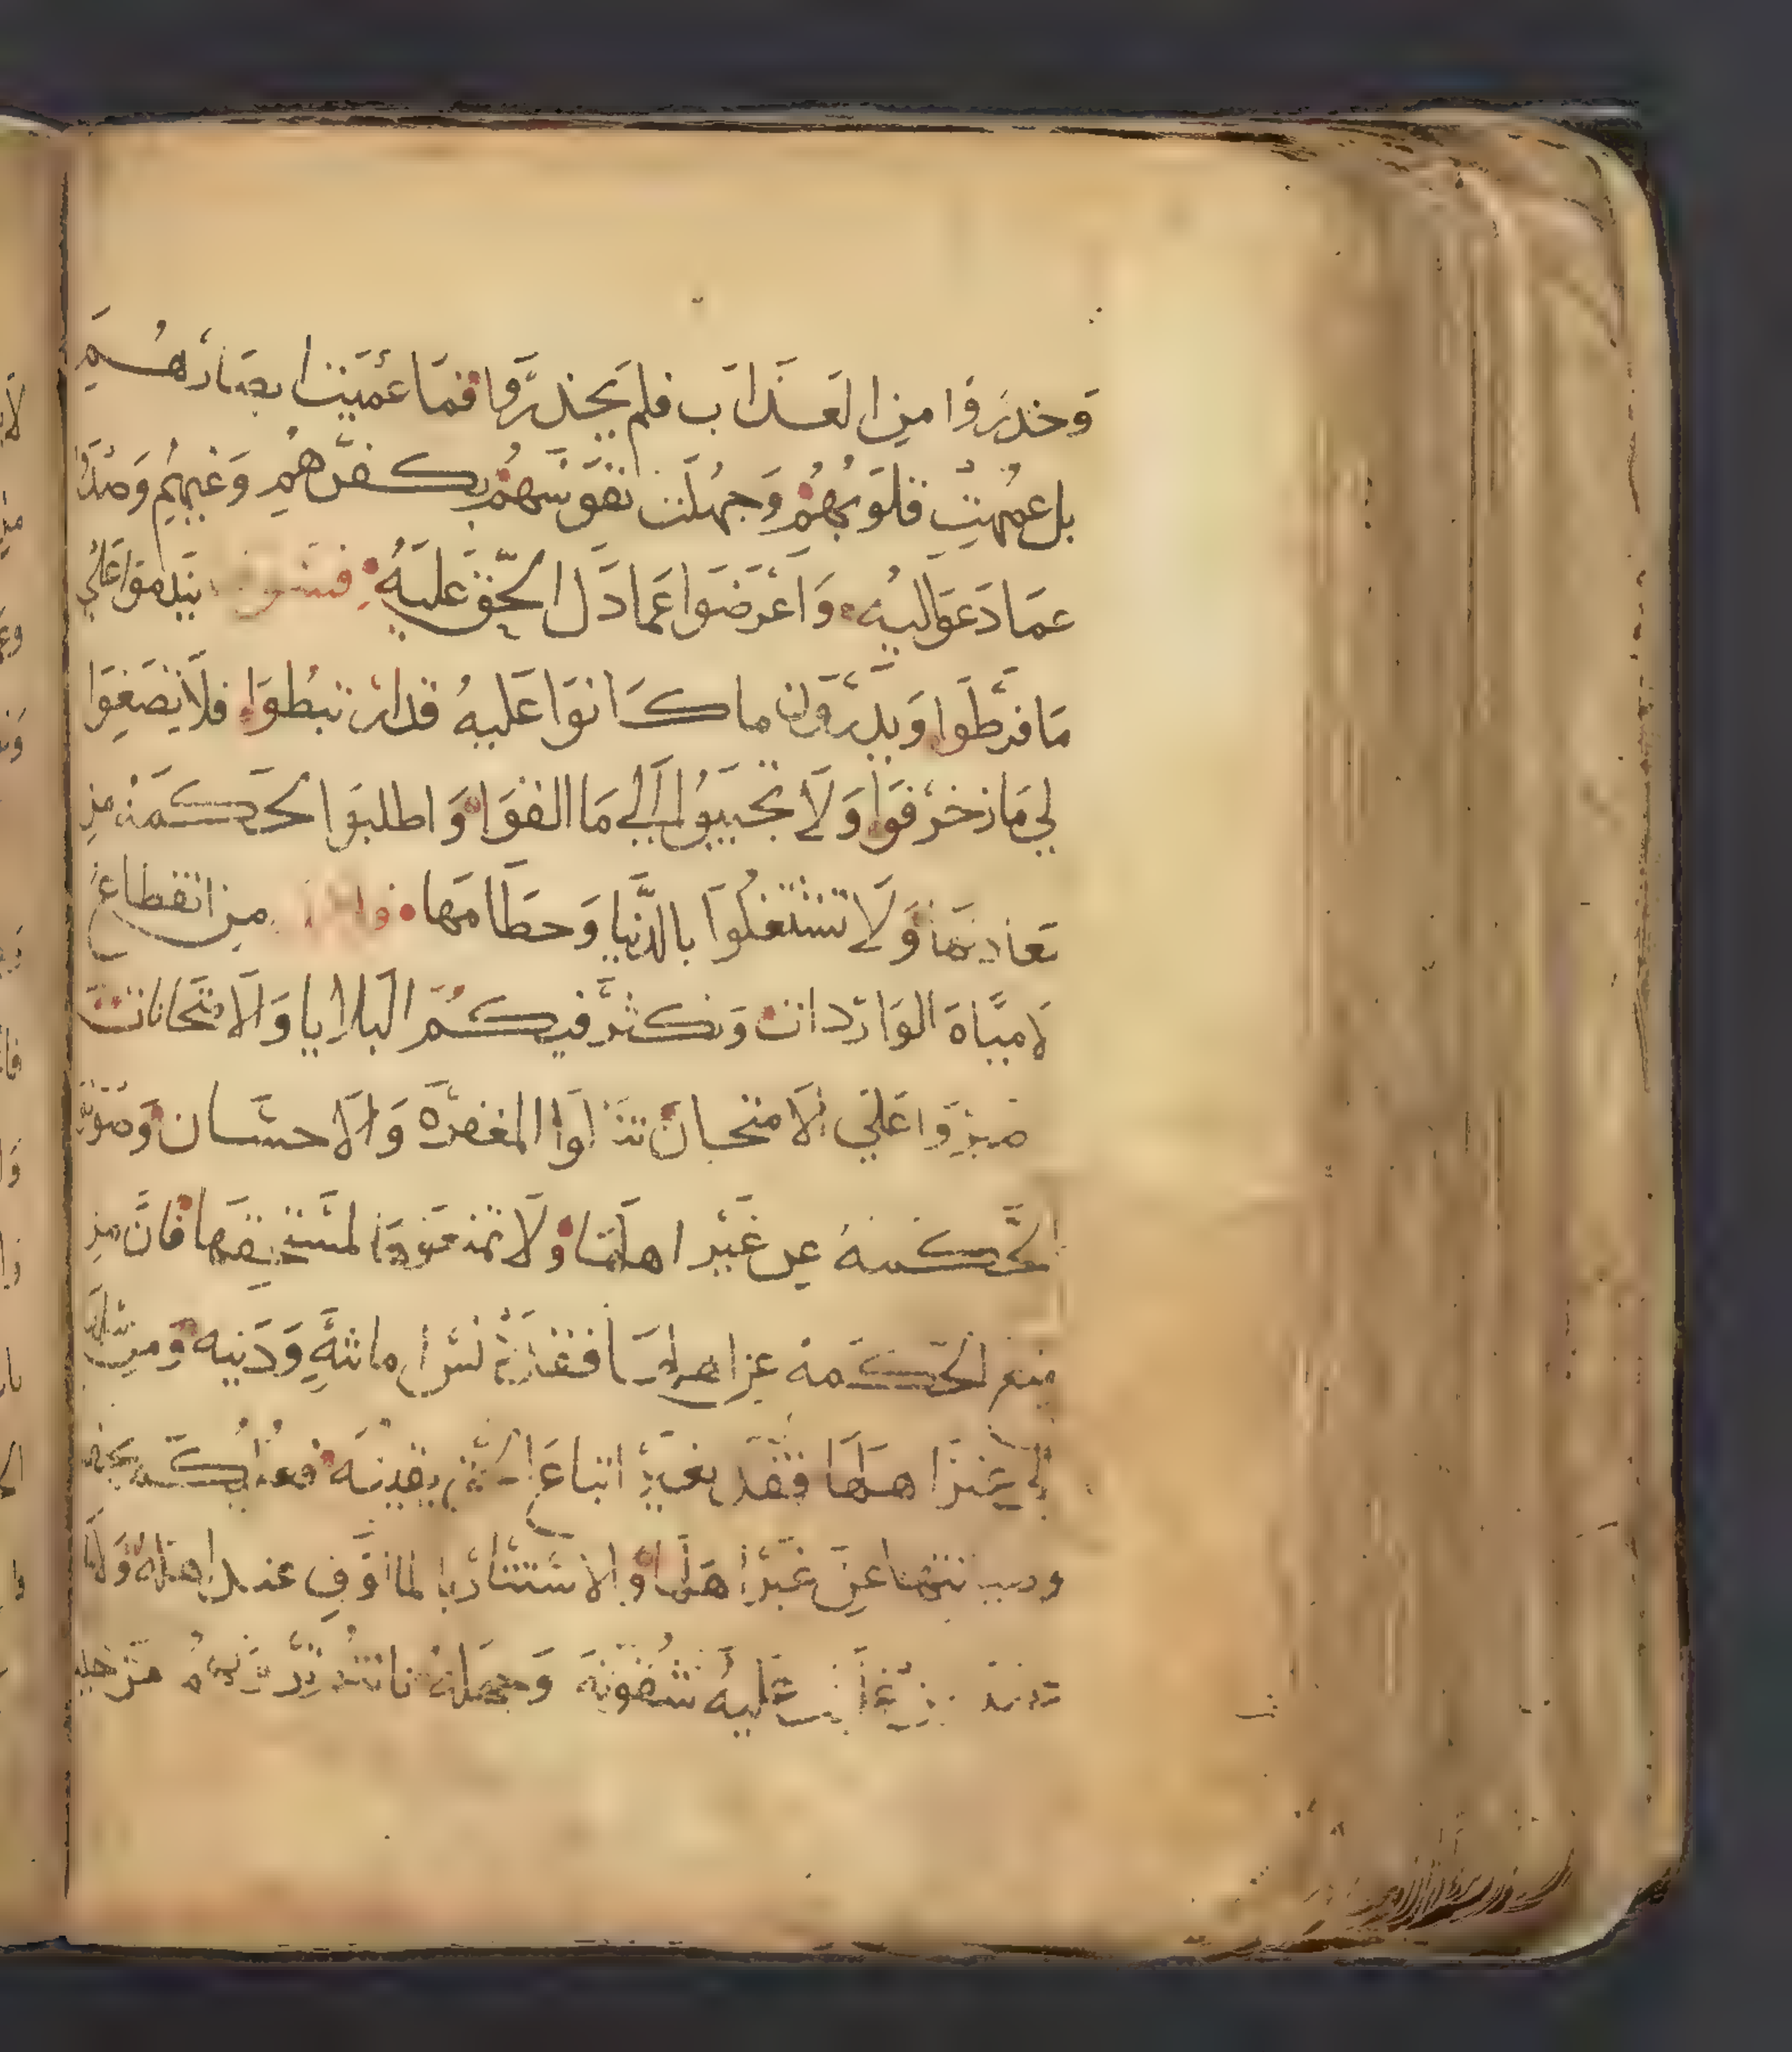 وحذروا من العذاب فلم يحذروا فما عميت ابصارهم
بل عمهت قلوبهم وجهلت نفوسهم بكفرهم وغيهم وصدوا
عما دعوا اليه واعرضوا عما دل الحق عليه فسوف يندموا علي
ما فرطوا ويدرون ما كانوا عليه قد ارتبطوا فلا تصغوا
لي ما زخرفوا ولا تجيبوا الي ما الفوا واطلبوا الحكمة من
معادنها ولا تشتغلوا بالدنيا وحطامها من انقطاع
لامباة الواردات وتكثر فيكم البلايا والامتحانات
صبروا علي الامتحان تنالوا المغفره والاحسان وصونوا
الحكمة عن غير اهلها ولا تمنعوها لمستحقها فان من
منع الحكمة عن اهلها فقد دنس امانته ودينه ومن
الي غير اهلها فقد بغير اتباع الحق يقينه
عن غير اهلها والاستتار بالمالوف عند اهله ولا
عليه شقوته وجهله